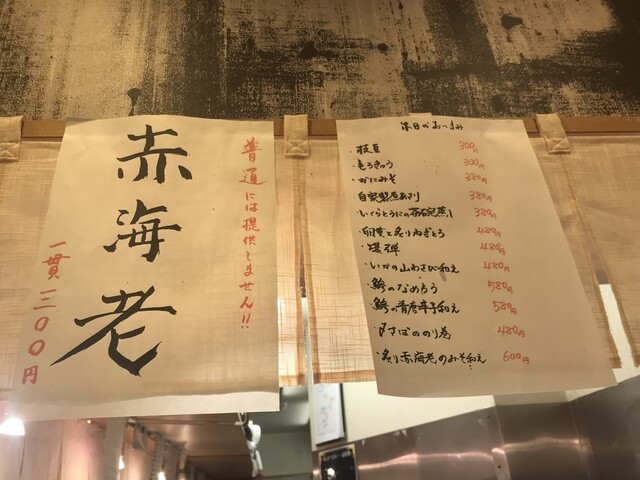 普通には提供しません!!
赤海老
一貫一三〇〇円
本日のおつまみ
・枝豆 300円
・もろきゅう 300円
・かにみそ 380円
・自家製煮あさり 380円
・いくらとうにの茶碗蒸し 380円
・卵黄と炙りねぎとろ 480円
・爆弾 480円
・いかの山わさび和え 480円
・鯵のなめろう 580円
・鯵の青唐辛子和え 580円
・〆さばののり巻 480円
・炙り赤海老のみそ和え 600円